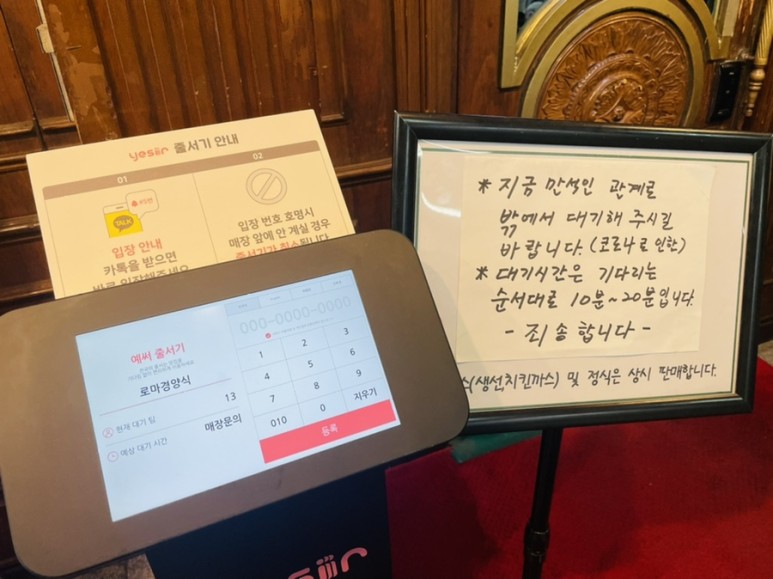 yessir 줄서기 안내
01
TALK
입장 안내
카톡을 받으면
바로 입장해주세요
02
입장 번호 호명시
매장 앞에 안 계실 경우
줄서기가 취소됩니다
예써 줄서기
로마경양식
현재 대기 팀 13
예상 대기 시간 매장문의
000-0000-0000
1 2 3
4 5 6
7 8 9
010 0 지우기
등록
* 지금 만석인 관계로
밖에서 대기해 주시길
바랍니다. (코로나로 인함)
* 대기시간은 기다리는
순서대로 10분~20분입니다.
- 죄송합니다 -
(생선치킨까스) 및 정식은 상시 판매합니다.